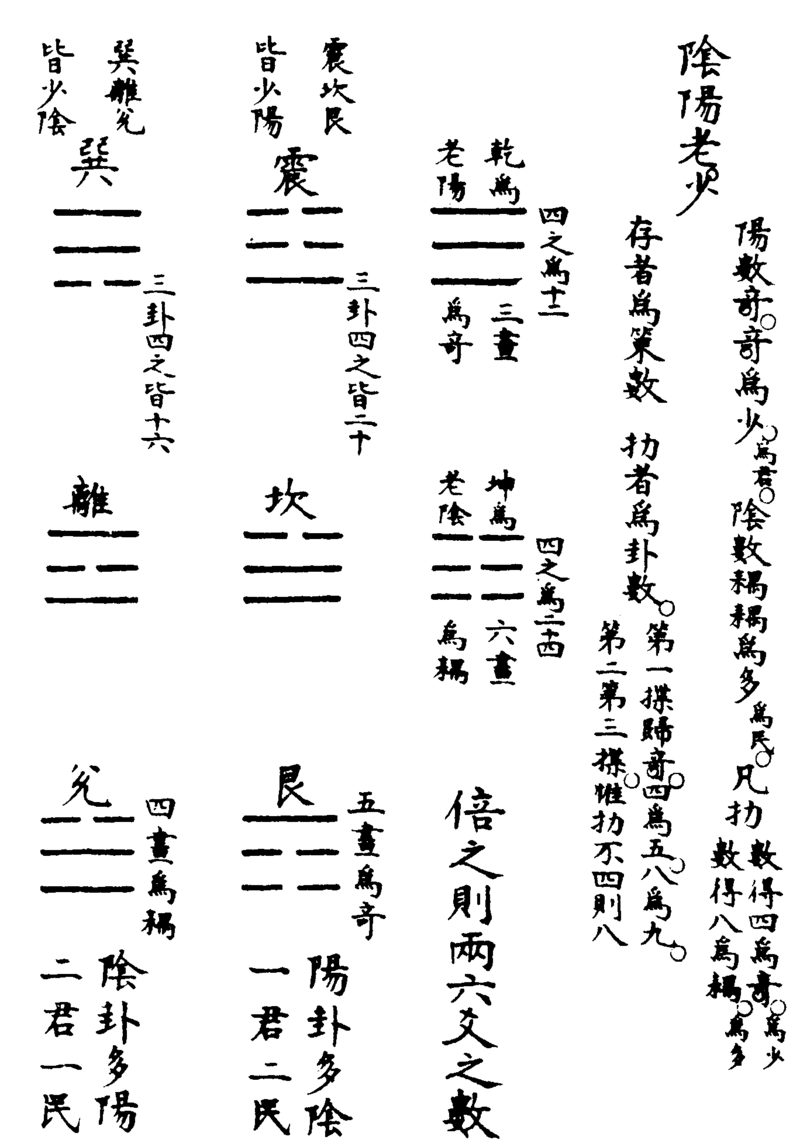 陰陽老少
陽數竒。竒爲少。爲君。陰數耦耦爲多爲民。凡扐數得四爲竒。爲少
數得八爲耦。爲多
存者爲策數　扐者爲卦數。第一揲歸竒。四爲五。八爲九。
第二第三揲。惟扐不四則八
乾爲
老陽
四之爲十二
三畫
爲竒
坤爲
老陰
四之爲二十四
六畫
爲耦
倍之則兩六爻之數
震坎艮
皆少陽
震
三卦四之皆二十
坎
艮
五畫爲竒
陽卦多陰
一君二民
巽離兊
皆少陰
巽
三卦四之皆十六
離
兊
四畫爲耦
陰卦多陽
二君一民